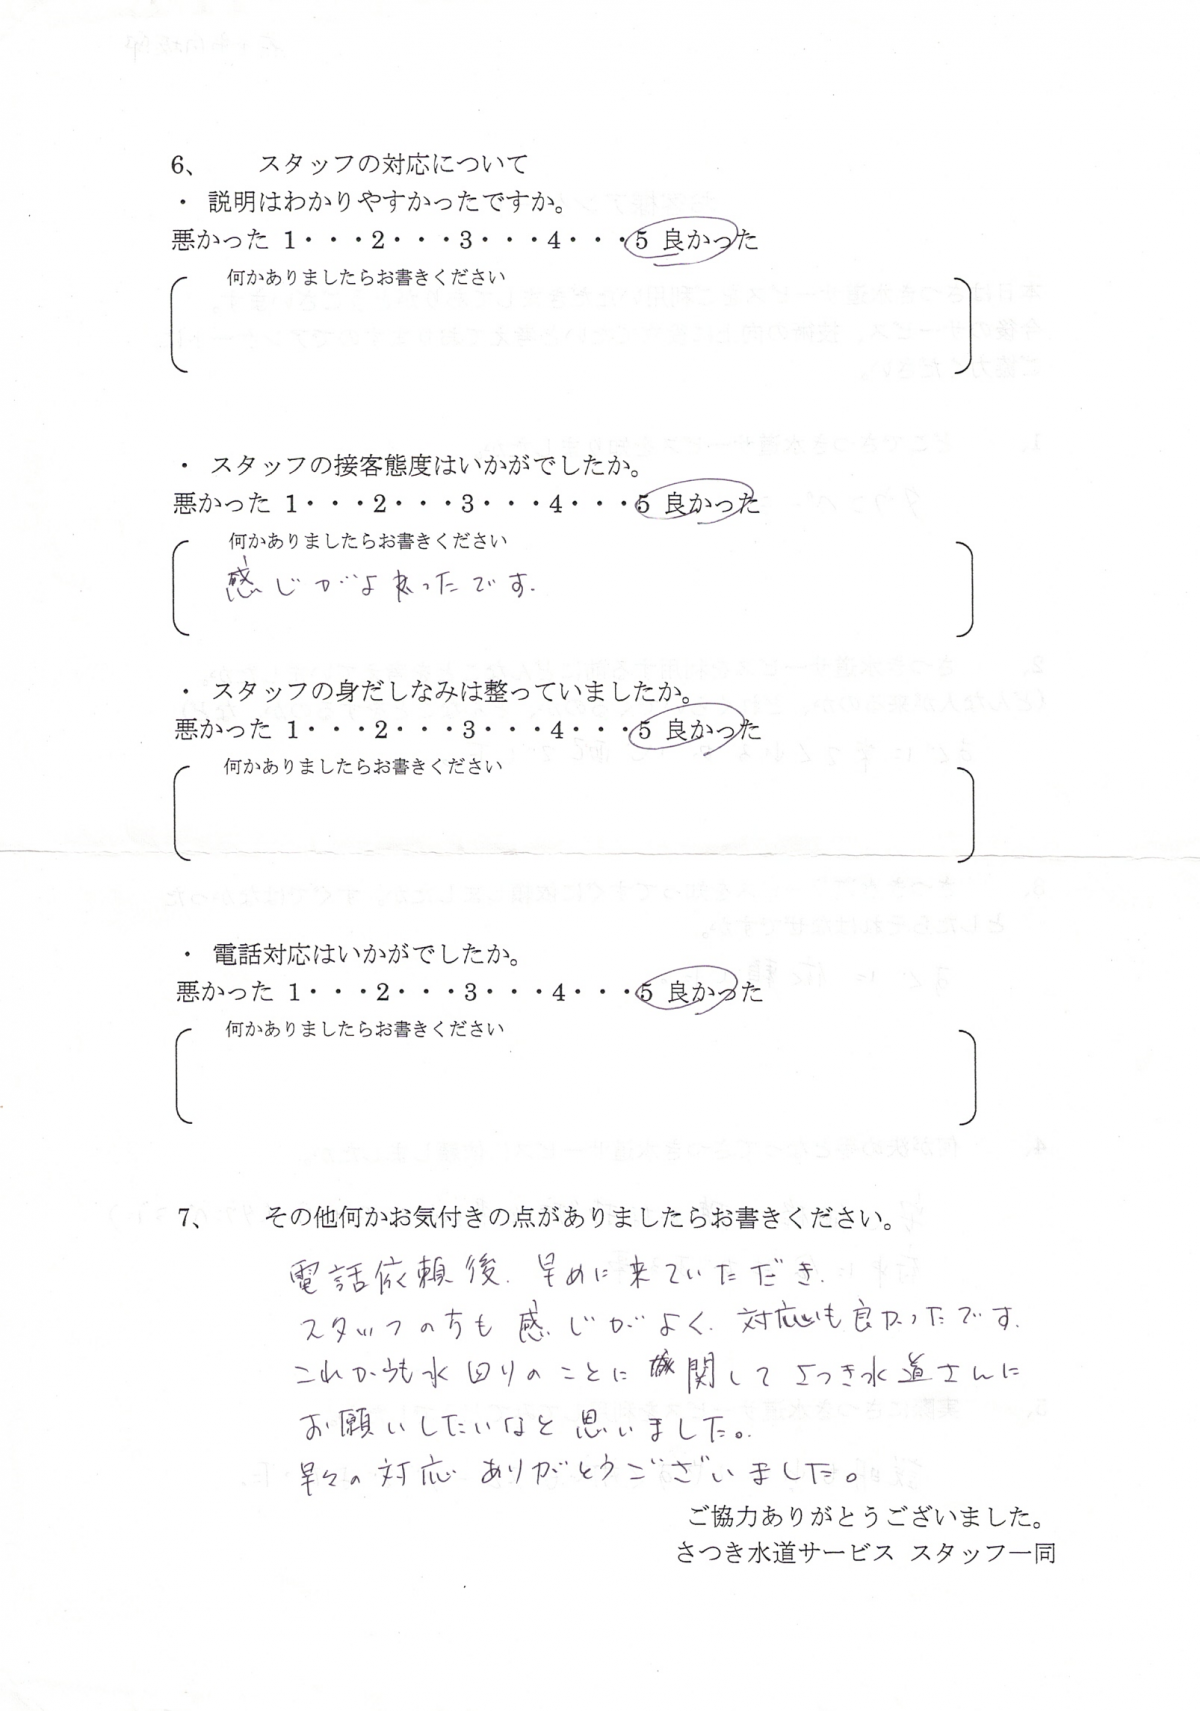 6、　スタッフの対応について
・ 説明はわかりやすかったですか。
悪かった 1・・・2・・・3・・・4・・・5 良かった
何かありましたらお書きください
・ スタッフの接客態度はいかがでしたか。
悪かった 1・・・2・・・3・・・4・・・5 良かった
何かありましたらお書きください
感じがよかったです.
・ スタッフの身だしなみは整っていましたか。
悪かった 1・・・2・・・3・・・4・・・5 良かった
何かありましたらお書きください
・ 電話対応はいかがでしたか。
悪かった 1・・・2・・・3・・・4・・・5 良かった
何かありましたらお書きください
7、　その他何かお気付きの点がありましたらお書きください。
電話依頼後、早めに来ていただき、
スタッフの方も感じがよく、対応も良かったです.
これからも水回りのことに関してさつき水道さんに
お願いしたいなと思いました。
早々の対応ありがとうございました。
ご協力ありがとうございました。
さつき水道サービス スタッフ一同